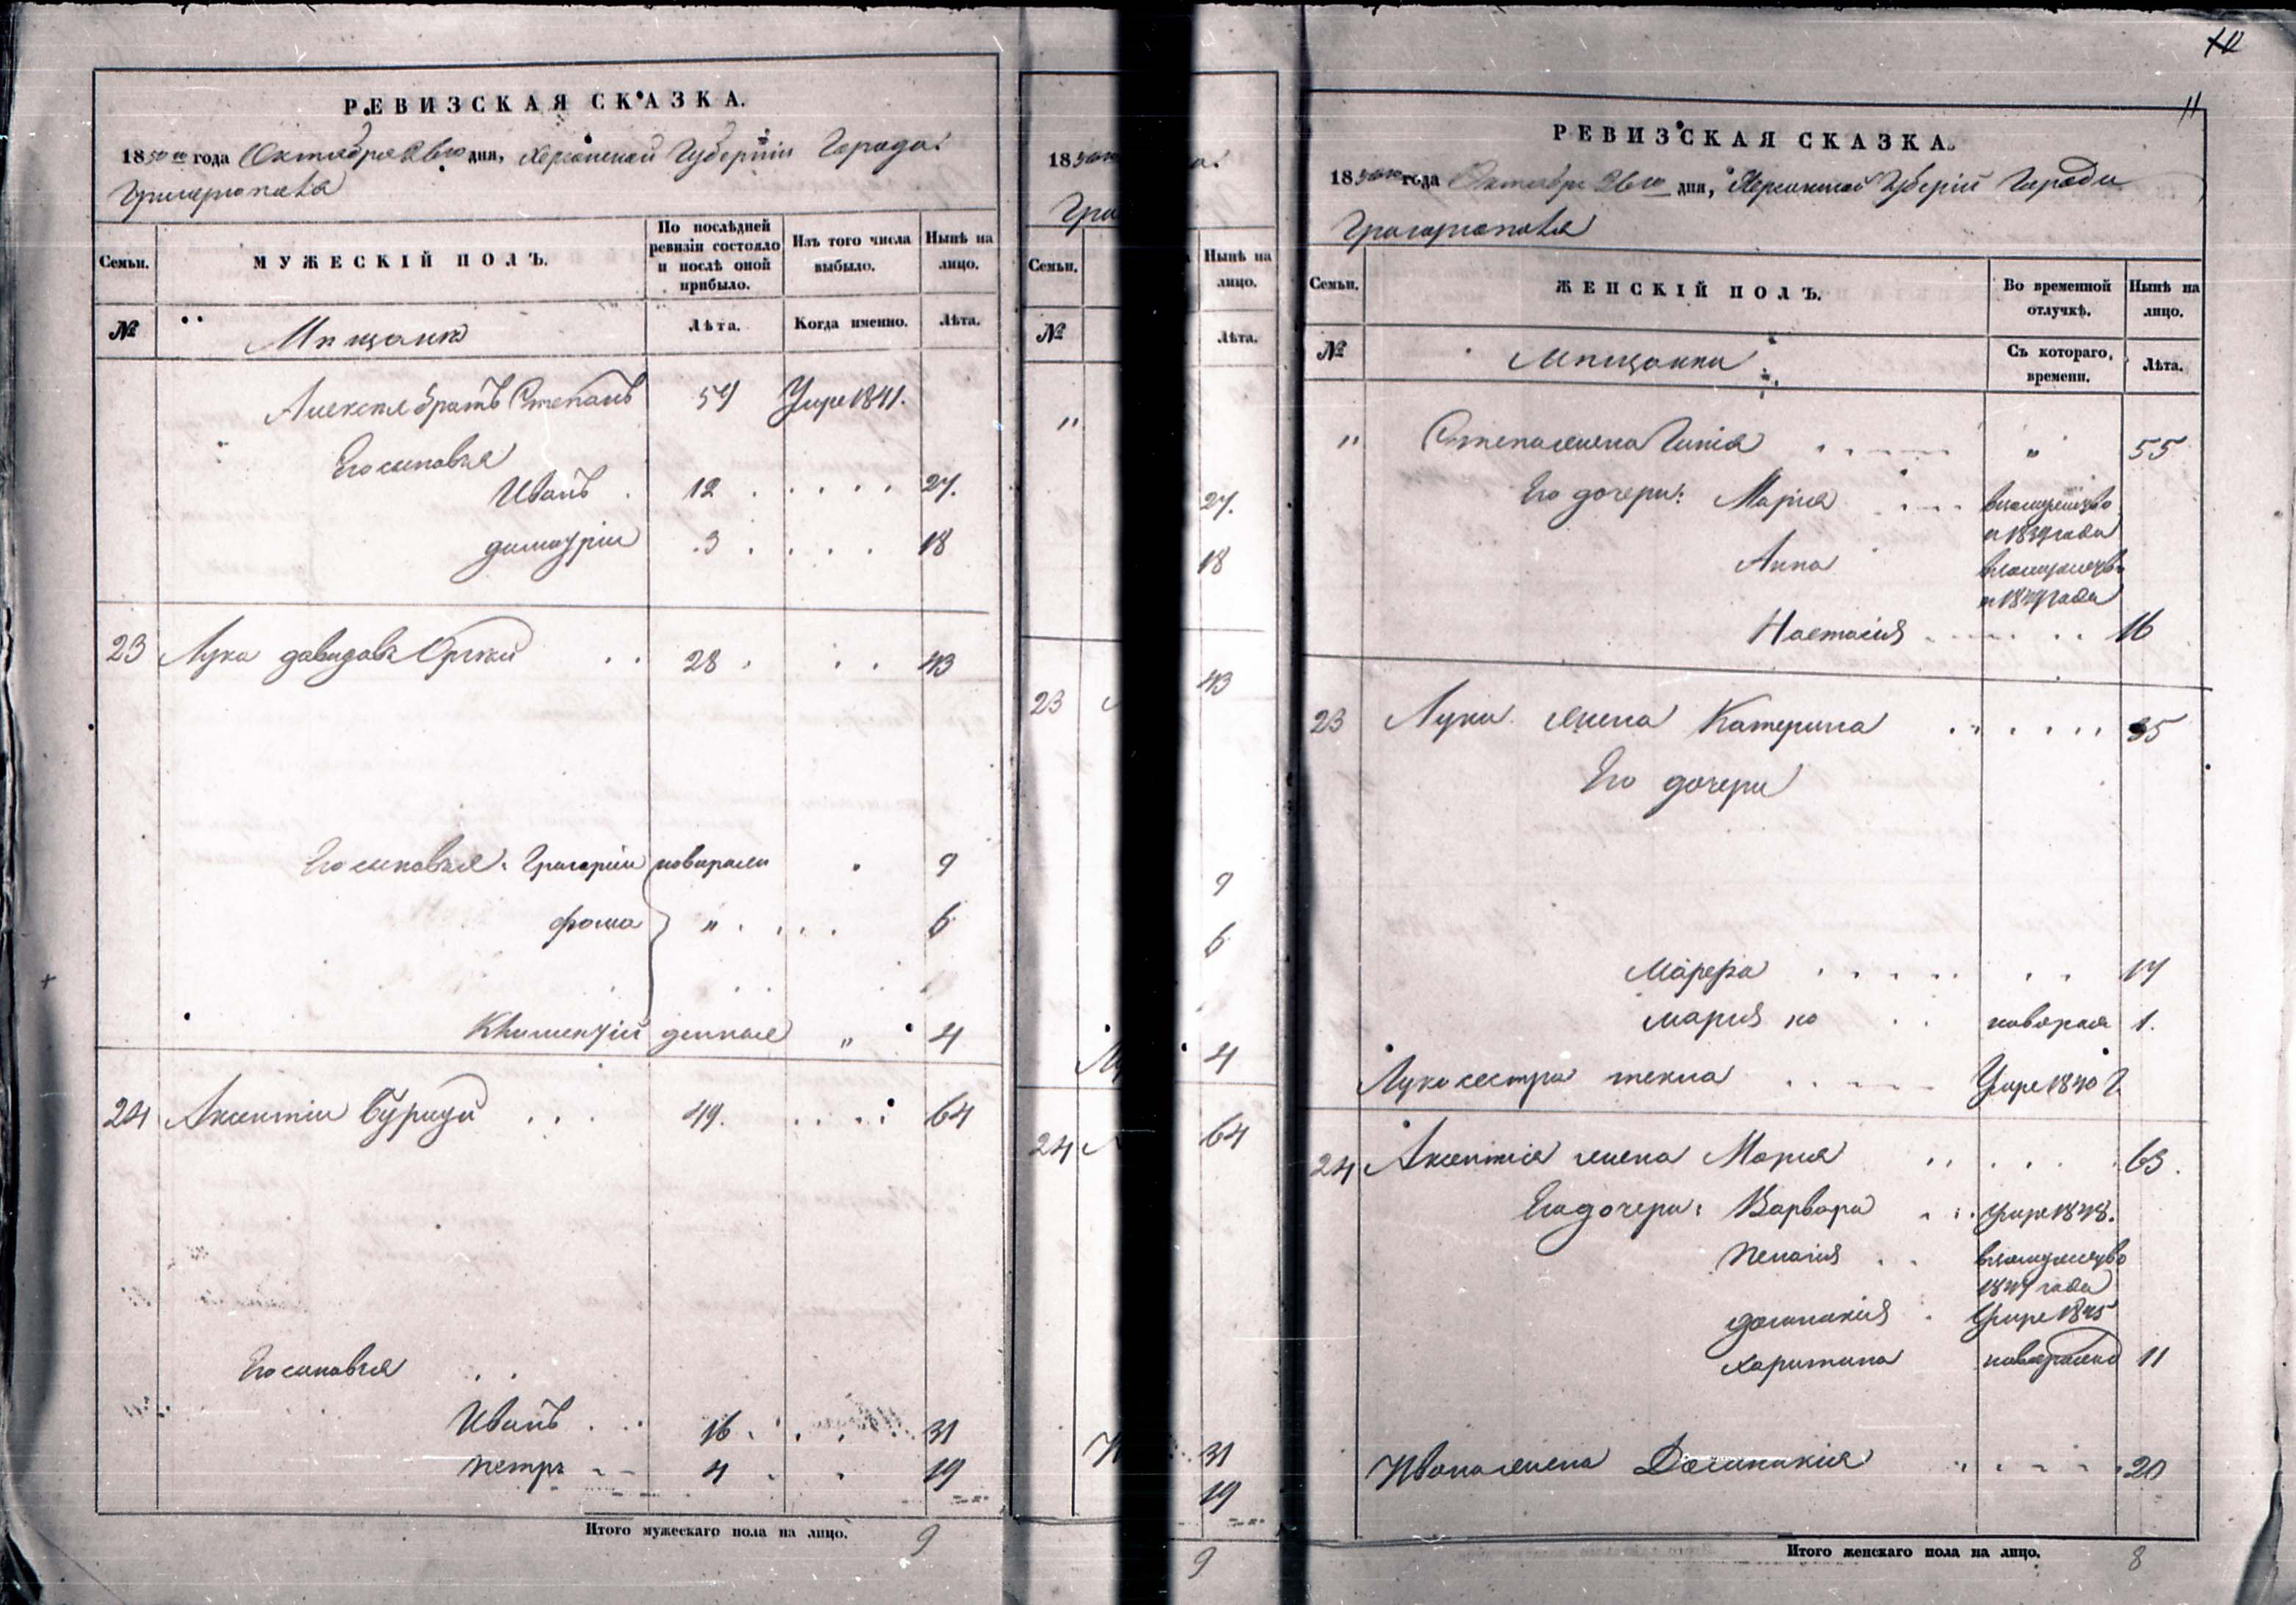 РЕВИЗСКАЯ СКАЗКА.
1850 го года Октября 26го дня, Херсонской Губерніи Города
Григоріополя
Семьи. МУЖЕСКІЙ ПОЛЪ. По послѣдней ревизіи состояло и послѣ оной прибыло. Изъ того числа выбыло. Нынѣ на лицо.
№ Мищанъ Лѣта. Когда именно. Лѣта.
Алексея братъ Степанъ 54 Умре 1841.
Его сыновья
Иванъ 12 27.
димитріи 3 18
23 Лука давидовъ 28 43
Его сыновья: Григоріи новорожен 9
фома " 6
Климентій " 4
24 Аксентіи 49. 64
Его сыновья
Иванъ 16 31
Петръ 4 19
Итого мужескаго пола на лицо. 9
18
Гри
Семьи.
№
"
23
24
Нынѣ на лицо.
Лѣта.
27.
18
43
9
6
4
64
31
19
9
11
РЕВИЗСКАЯ СКАЗКА.
1850го года Октября 26го дня, Херсонской Губерніи Города
Григоріополя
Семьи. ЖЕНСКІЙ ПОЛЪ. Во временной отлучкѣ. Нынѣ на лицо.
№ Мищанки Съ котораго времени. Лѣта.
" Степана жена " 55
Его дочери: Марія взамужество
года
Анна взамужество
года
Настасія 16
23 Луки жена Катерина 35
Его дочери
17
Мария новорож 1.
Луки сестра текла Умре 1840 г
24 Аксентія жена Мария 63.
Его дочери: Варвара Умре 1848.
Пелагия взамужество
года
домникия Умре 1845
харитина новорожен 11
Ивана жена Домникия 20
Итого женскаго пола на лицо. 8